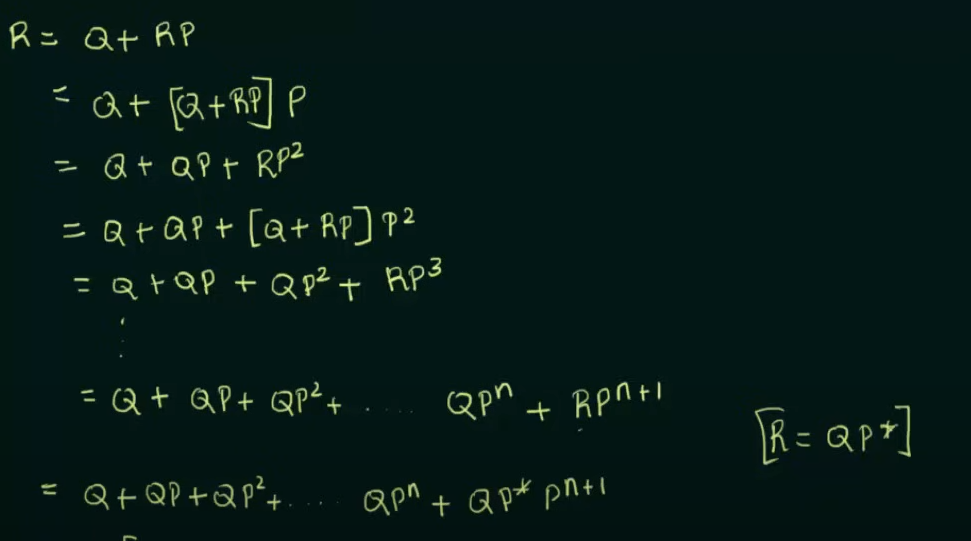 R = Q + RP
= Q + [Q + RP] P
= Q + QP + RP²
= Q + QP + [Q + RP] P²
= Q + QP + QP² + RP³
⋮
= Q + QP + QP² + ..... QPⁿ + RPⁿ⁺¹
[R = QP*]
= Q + QP + QP² + .... QPⁿ + QP* Pⁿ⁺¹